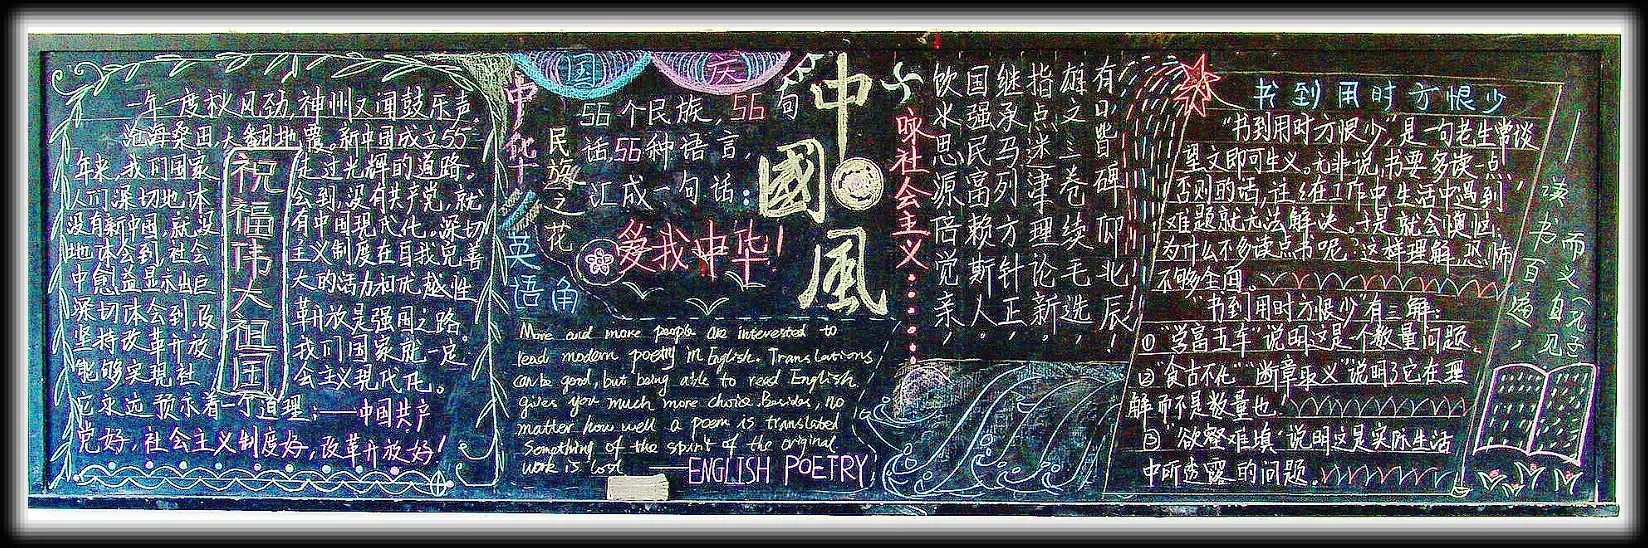 一年一度秋风劲,神州又闻鼓乐声
沧海桑田,天翻地覆。新中国成立55
年来,我们国家
走过光辉的道路。
人们深切地体
会到,没有共产党,就
没有新中国,就没
有中国现代化。深切
地体会到,社会
主义制度在自我完善
中愈益显示出巨
大的活力和优越性
深切体会到,
革开放是强国之路。
坚持改革开放
我们国家就一定
能够实现社
会主义现代化。
它永远预示着一个道理:——中国共产
党好,社会主义制度好,改革开放好!
祝福伟大祖国
国庆
中华
民族之花
56个民族,56句
话,56种语言,
汇成一句话:
爱我中华!
中國風
英语角
More and more people are interested to
read modern poetry in English. Translations
can be good, but being able to read English
gives you much more choice. Besides, no
matter how well a poem is translated
something of the spirit of the original
work is lost
——ENGLISH POETRY
咏社会主义
有口皆碑仰北辰,
雄文三卷续毛选,
指点迷津理论新
继承马列方针正,
国强民富赖斯人。
饮水思源倍觉亲,
书到用时方恨少
"书到用时方恨少",是一句老生常谈
望文即可生义。尤非说,书要多读一点,
否则的话,往往在工作中,生活中遇到
难题就无法解决。于是就会懊恼:
为什么不多读点书呢?这样理解,恐怖
不够全面。
"书到用时方恨少"有三解:
①"学富五车"说明这是个数量问题。
②"食古不化""断章取义"说明了它在理
解而不是数量也.
③"欲壑难填"说明这是实际生活
中所透露的问题.
读书百遍,
而义自见